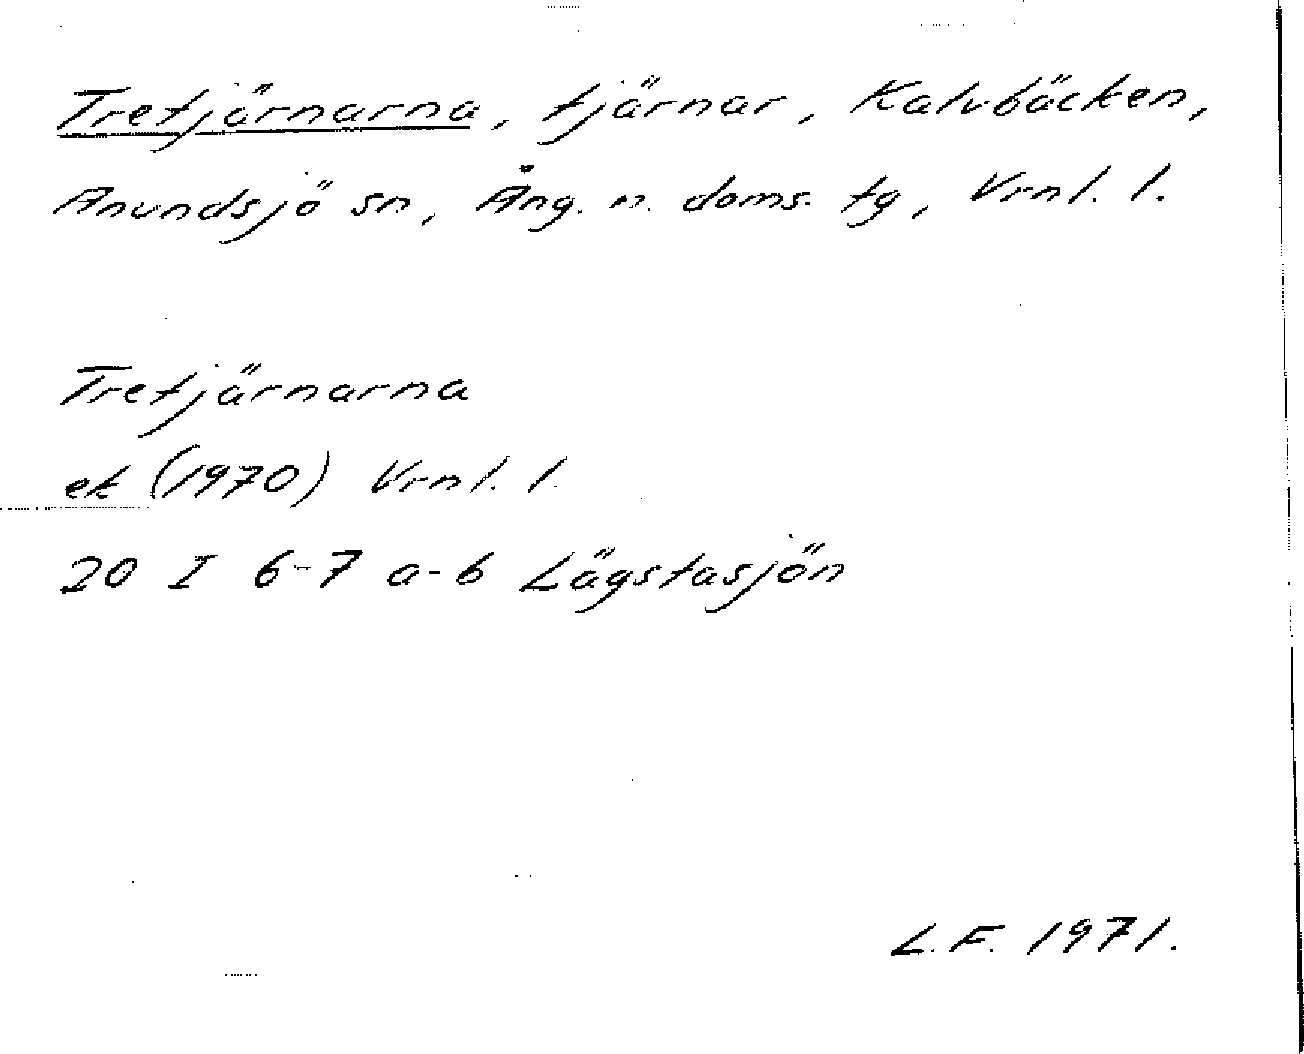 Tretjärnarna, tjärnar, Kalvbäcken,
Anundsjö sn, Ång. n. doms. tg, Vrnl. l.
Tretjärnarna
ek (1970) Vrnl. l.
20 I 6-7 a-b Lägstasjön
L.F. 1971.